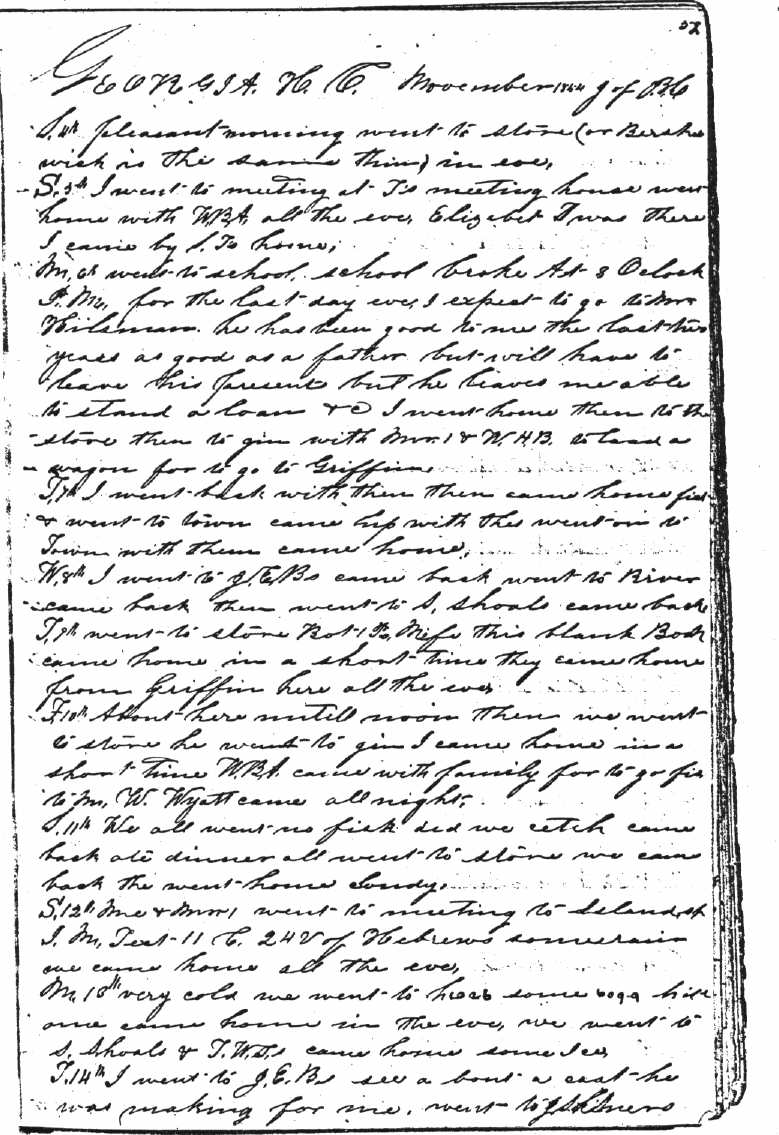 52
GEORGIA. H. C. November 1844 J of B.C
S. 4th pleasant morning went to store (or Bershe
wick is the same thing) in eve,
S. 5th I went to meeting at T's meeting house went
home with W.B.A. all the eve, Elizabet T was there
I came by S. Ts home,
M, 6th went to school. school broke At 3 Oclock
P. M., for the last day eve, I expect to go to Mr
Hilsman. he has been good to me the last two
years as good as a father but will have to
leave his present but he leaves me able
to stand a loan &c I went home then to the
store then to gin with Mr. 1 & W. H B. to load a
wagon for to go to Griffin.
T, 7th I went back with them then came home
& went to town came up with the went on to
Town with them came home,
W, 8th I went to J. E. Bs came back went to River
came back then went to S, Shoals came back
T, 9th went to store Bot 1 this blank Book
came home in a short time they came home
from Griffin here all the eve,
F. 10th About here untill noon then we went
to store he went to gin I came home in a
short time W.B.A. came with family for to go
to M, W. Wyatt came all night,
S. 11th We all went no fish did we cetch came
back ate dinner all went to store we came
back the went home
S. 12th Me & Mr. 1 went to meeting to Island
J. M, Text 11 C. 24 V of Hebrews some rain
we came home all the eve,
M, 13th very cold we went to some
one came home in the eve, we went to
S. Shoals & T. W. Ts came home some Ice,
T. 14th I went to J. E. Bs see a bout a coat he
was making for me. went to